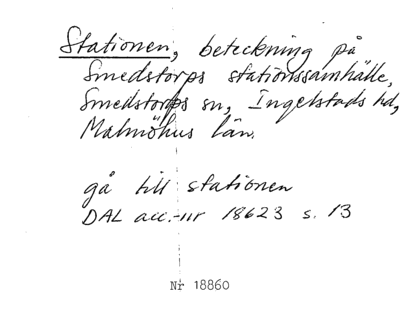 Stationen, beteckning på
Smedstorps stationssamhälle,
Smedstorps sn, Ingelstads hd,
Malmöhus län.
gå till stationen
DAL acc.-nr 18623 s. 13
Nr 18860